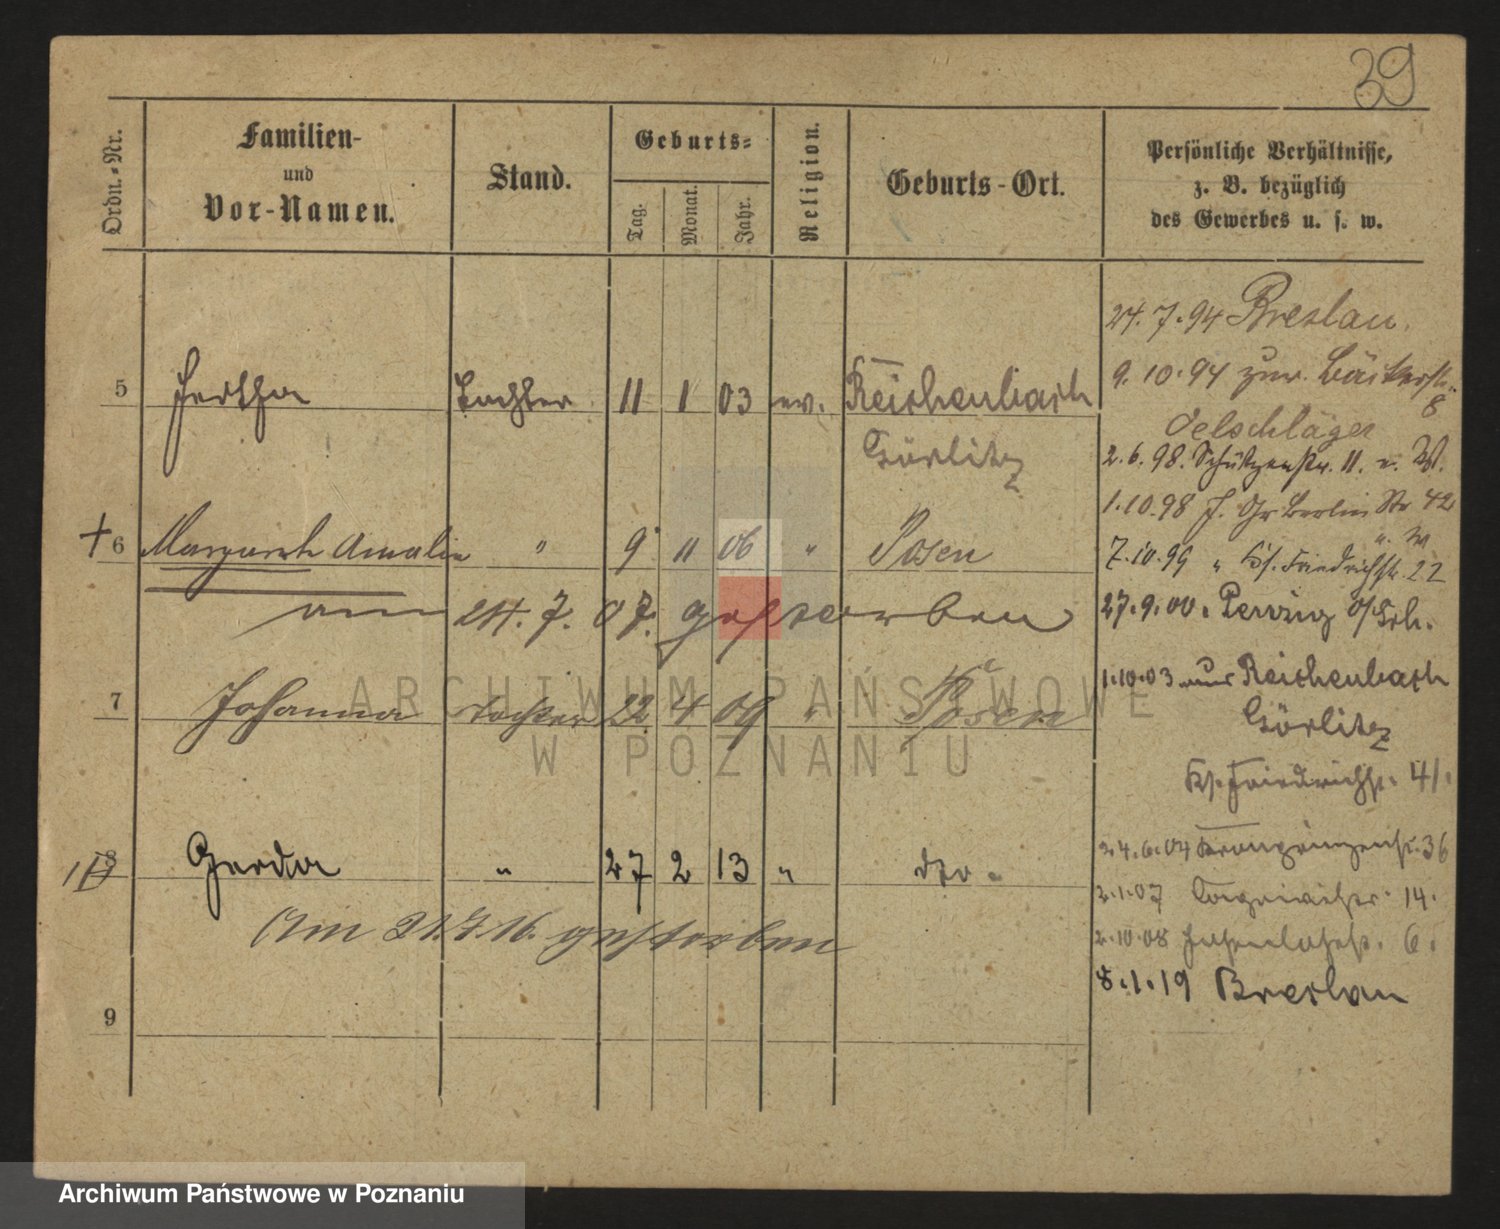 39
Ordn.-Nr.
Familien-
und
Vor-Namen.
Stand.
Geburts-
Tag.
Monat.
Jahr.
Religion.
Geburts-Ort.
Persönliche Verhältnisse,
z. B. bezüglich
des Gewerbes u. s. w.
24.7.94 Breslau.
9.10.94 zur. Bäckerstr.
8
5 Hertha Tochter 11 1 03 ev. Reichenbach
Görlitz
Oelschläger
2.6.98. Schützenstr. 11. b. W.
1.10.98 Gr Berlin Str 42
† 6 Margareth Amalie " 9 11 06 " Posen
b. W
7.10.99 " Friedrichstr. 22
am 24.7.07. gestorben
27.9.00. Penzig O/Lch.
1.10.03 Reichenbach
Görlitz
7 Johanna Tochter 22 4 09 " Posen
Friedrichstr. 41.
24.6.04 Kronprinzenstr. 36
8 Gerda " 27 2 13 " dto.
2.1.07 14.
Am 21.7.16. gestorben
2.10.08 6.
8.1.19 Breslau
9
ARCHIWUM PAŃSTWOWE
W POZNANIU
Archiwum Państwowe w Poznaniu